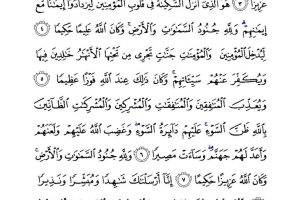 عَزِيزًا ٣ هُوَ الَّذِي أَنزَلَ السَّكِينَةَ فِي قُلُوبِ الْمُؤْمِنِينَ لِيَزْدَادُوا إِيمَانًا مَّعَ
إِيمَانِهِمْ ۗ وَلِلَّهِ جُنُودُ السَّمَاوَاتِ وَالْأَرْضِ ۚ وَكَانَ اللَّهُ عَلِيمًا حَكِيمًا ٤
لِّيُدْخِلَ الْمُؤْمِنِينَ وَالْمُؤْمِنَاتِ جَنَّاتٍ تَجْرِي مِن تَحْتِهَا الْأَنْهَارُ خَالِدِينَ فِيهَا
وَيُكَفِّرَ عَنْهُمْ سَيِّئَاتِهِمْ ۚ وَكَانَ ذَٰلِكَ عِندَ اللَّهِ فَوْزًا عَظِيمًا ٥
وَيُعَذِّبَ الْمُنَافِقِينَ وَالْمُنَافِقَاتِ وَالْمُشْرِكِينَ وَالْمُشْرِكَاتِ الظَّانِّينَ
بِاللَّهِ ظَنَّ السَّوْءِ ۚ عَلَيْهِمْ دَائِرَةُ السَّوْءِ ۖ وَغَضِبَ اللَّهُ عَلَيْهِمْ وَلَعَنَهُمْ
وَأَعَدَّ لَهُمْ جَهَنَّمَ ۖ وَسَاءَتْ مَصِيرًا ٦ وَلِلَّهِ جُنُودُ السَّمَاوَاتِ وَالْأَرْضِ ۚ
وَكَانَ اللَّهُ عَزِيزًا حَكِيمًا ٧ إِنَّا أَرْسَلْنَاكَ شَاهِدًا وَمُبَشِّرًا وَنَذِيرًا